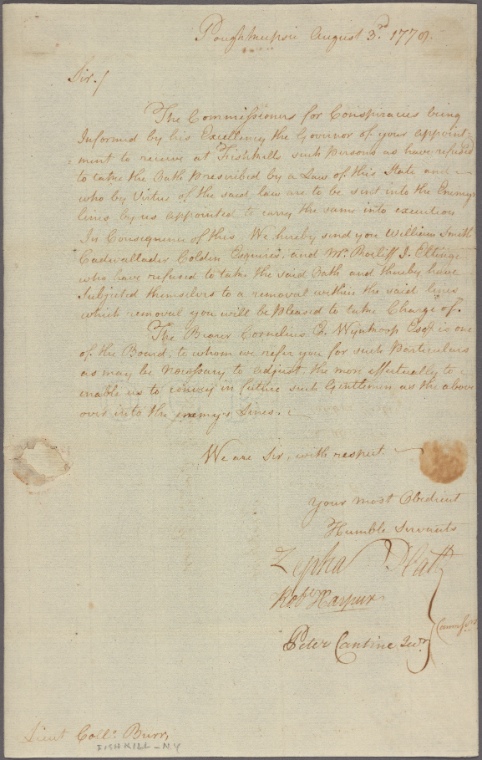 Poughkeepsie August 3.rd 1778.
Sir./
The Commissioners for Conspiracies being
Informed by his Excellency the Governor of your appoint
ment to receive at Fishkills such Persons as have refused
to take the Oath Prescribed by a Law of this State and
who by Virtue of the said law are to be sent into the Enemys
lines by us appointed to carry the same into execution
In Consequence of this. We hereby send you William Smith
Cadwallader Colden Esquires, and Mr. Roeliff J. Eltinge
who have refused to take the said Oath and thereby have
Subjected themselves to a removal within the said lines
which removal you will be pleased to take Charge of.
The Bearer Cornelius C. Wynkoop Esqr. is one
of the Board, to whom we refer you for such Particulars
as may be necessary to adjust the more effectually to
enable us to convey in future such Gentlemen as the above
over into the enemy's lines.
We are Sir, with respect
Your most Obedient
Humble Servants
Zepha Platt
Robt. Harpur
Peter Cantine Junr.
Commissrs
Lieut Coll. Burr,
FISHKILL - NY